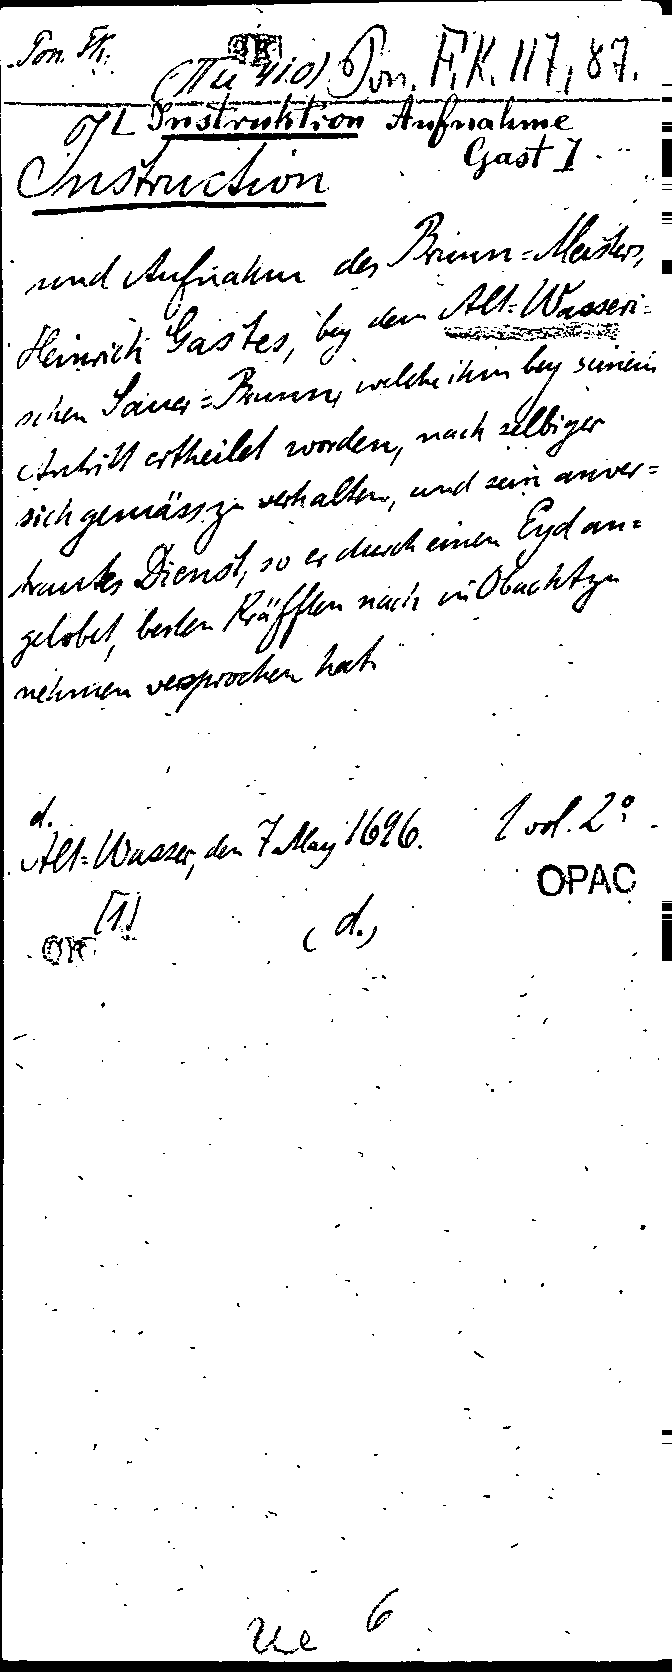 Pon. Fk.
(Tu 410) Pon. F.K. 117, 87.
Instruktion Aufnahme
Gast I
Instruction
und Aufnahm des Brunn=Meisters,
Heinrich Gastes, bey dem Alt=Wasseri=
schen Sauer=Brunn, welche ihm bey seinem
Antritt ertheilet worden, nach selbiger
sich gemäss zu verhalten, und sein anver=
trautes Dienst, so er durch einen Eyd an=
gelobet, besten Kräfften nach in Obacht zu
nehmen versprochen hat.
d.
Alt=Wasser, den 7. May 1696. 1 vol. 2°
OPAC
[1]
(d.)
6